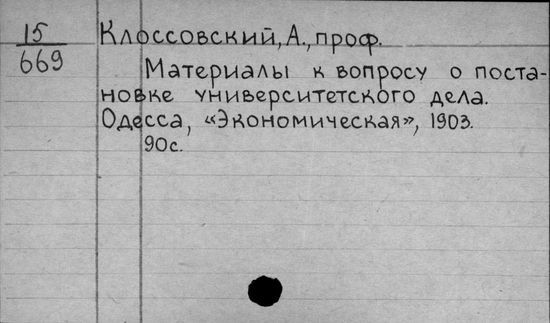 15
669
Клоссовский, А., проф.
Материалы к вопросу о поста-
новке университетского дела.
Одесса, «Экономическая», 1903.
90с.